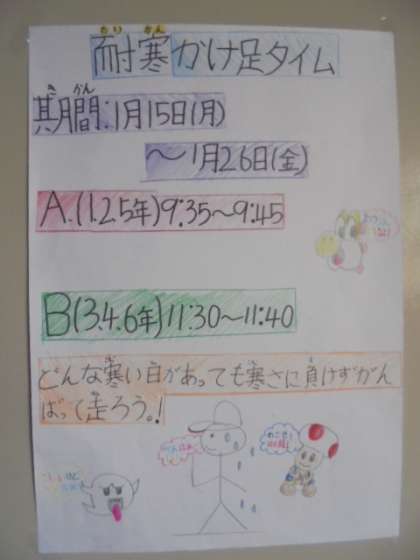 たい かん
耐寒かけ足タイム
き かん
期間:1月15日(月)
~1月26日(金)
A.(1.2.5年)9:35~9:45
B(3.4.6年)11:30~11:40
どんな寒い日があっても寒さに負けずがん
ばって走ろう。!